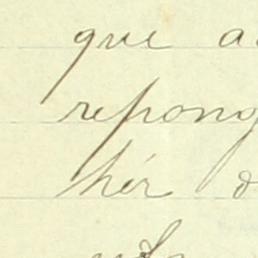 que a
repong
hér d